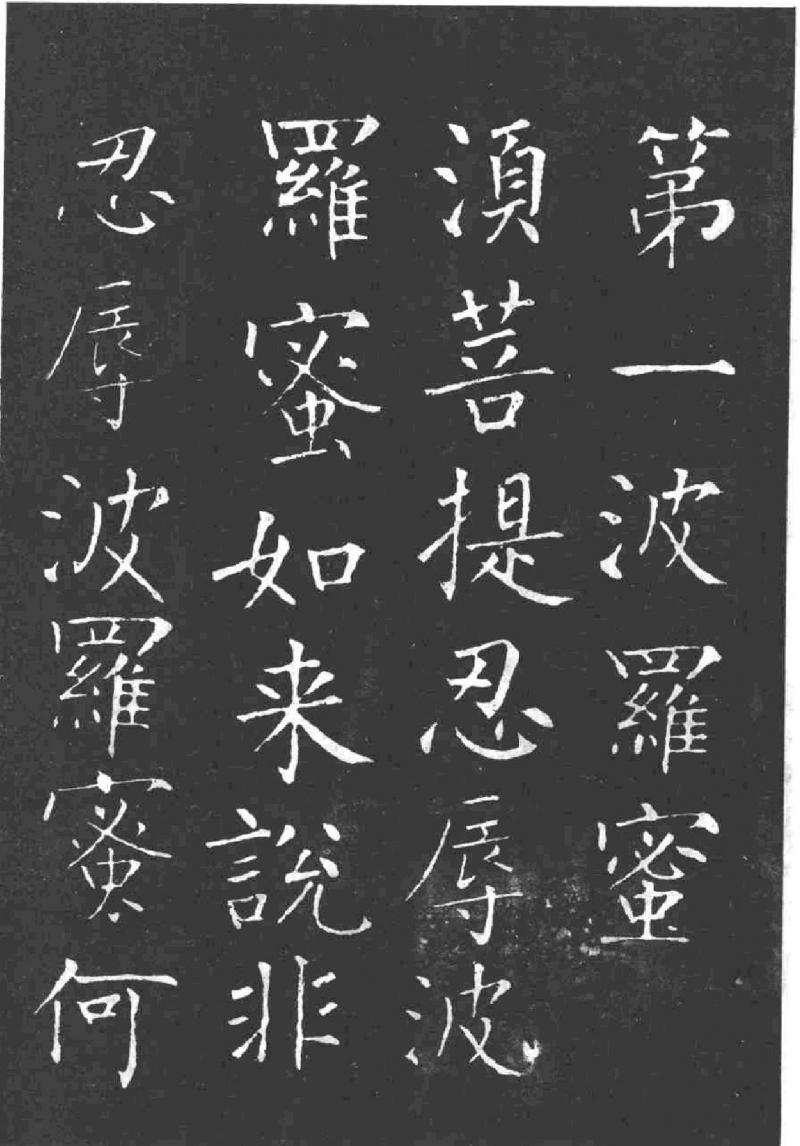 第一波羅蜜
須菩提忍辱波
羅蜜如来說非
忍辱波羅蜜何